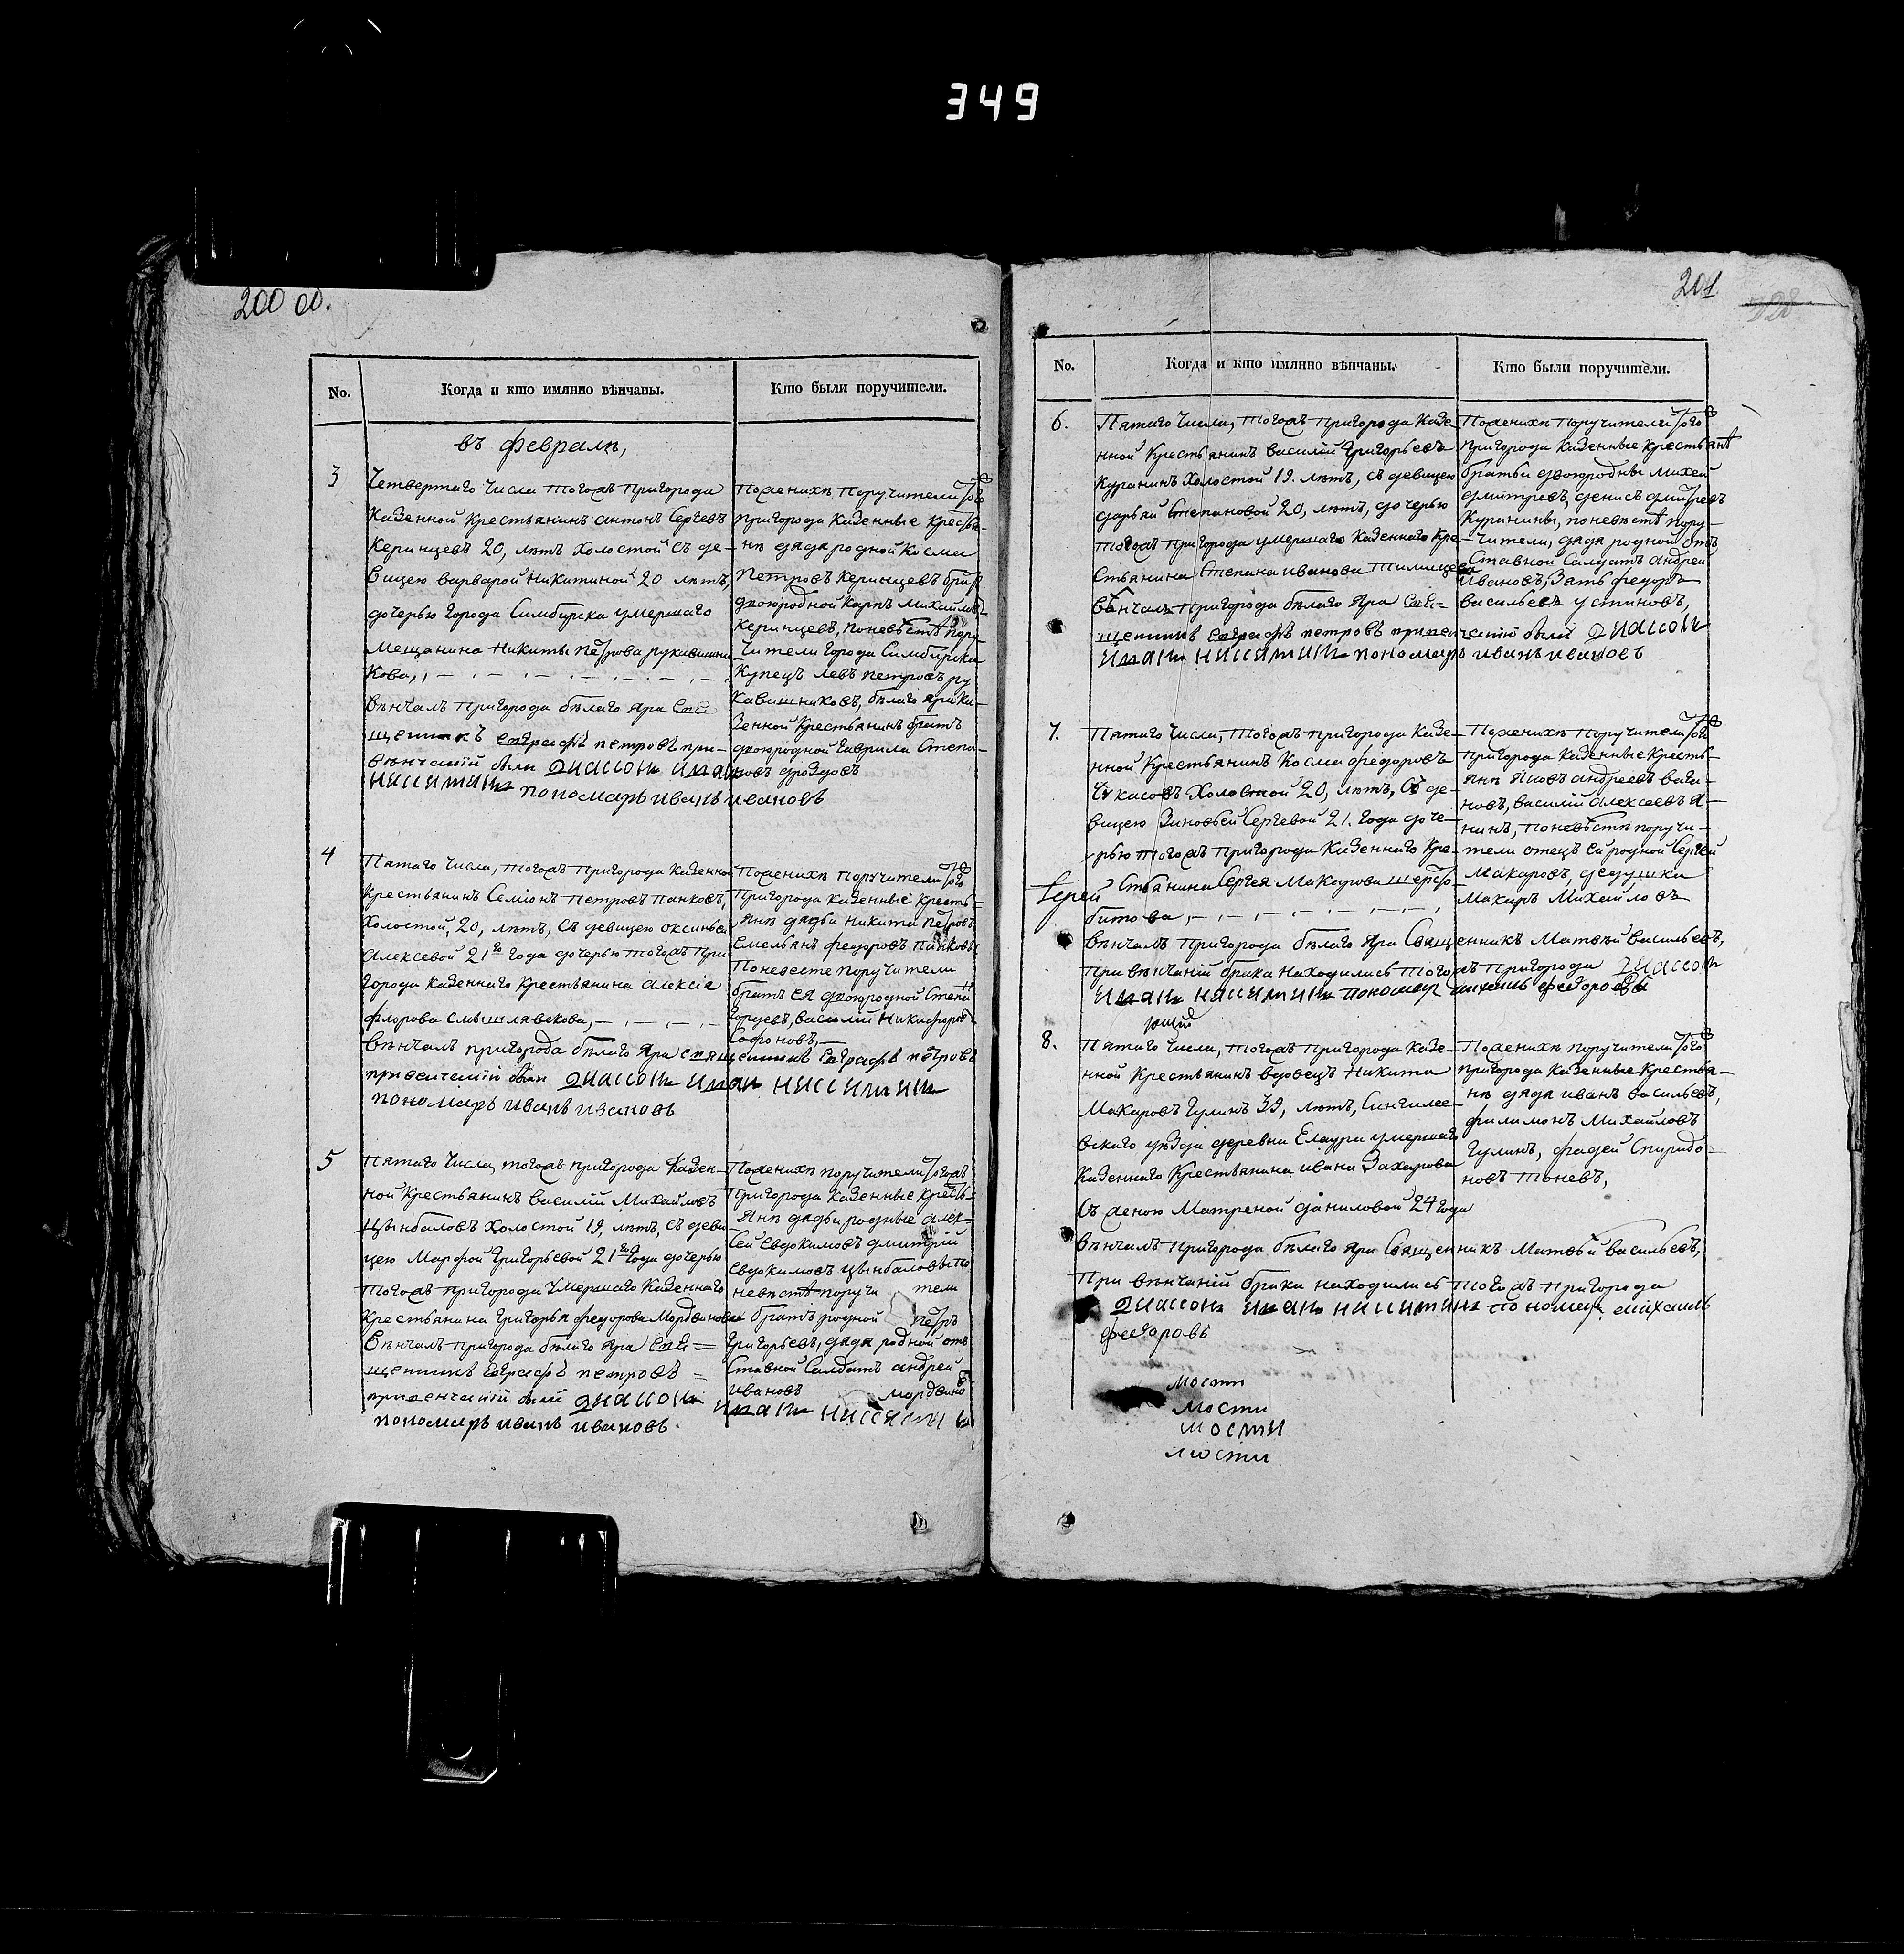 349
200 об.
No.
Когда и кто имянно вѣнчаны.
Кто были поручители.
въ февралѣ,
3
Четвертаго числа тогожъ пригорода
Казенной Крестьянинъ антонъ Сергѣевъ
Керинцевъ 20, лѣтъ холостой съ де-
вицею варварой Никитиной 20 лѣтъ,
дочерью города Симбирска умершаго
мещанина Никиты Петрова рукавишни
кова,
вѣнчалъ пригорода бѣлаго Яра Свя
щенникъ Евграфъ петровъ при-
вѣнчаніи были Диаконъ Иванъ
Никитинъ пономарь иванъ ивановъ
Поженихѣ поручители того
пригорода казенные кресть-
янѣ дядя родной Косма
Петровъ Керинцевъ братъ
двоюродной Карпъ Михайловъ
Керинцевъ, поневѣстѣ пору-
чители города Симбирска
Купецъ левъ петровъ ру
кавишниковъ, бѣлаго яра ка-
зенной Крестьянинъ братъ
двоюродной гаврила Степа-
новъ дроздовъ
4
Пятаго числа, тогожъ пригорода казенной
крестьянинъ Семіонъ петровъ панковъ,
холостой, 20, лѣтъ, съ девицею оксиньей
алексевой 21го года дочерью тогожъ при
города казеннаго крестьянина алексія
флорова
вѣнчалъ пригорода бѣлаго яра священникъ Евграфъ петровъ
привенченіи были Диаконъ Иванъ Никитинъ
пономарь иванъ ивановъ
Поженихѣ поручители того
пригорода казенные кресть-
янѣ дядья никита петровъ
Емельянъ федоровъ панковы
Поневесте поручители
братъ ея двоюродной Степанъ
василій Никифоровъ
Софоновъ,
5
Пятаго числа, тогожъ пригорода Казен-
ной Крестьянинъ василій Михайловъ
Цынбаловъ холостой 19, лѣтъ, съ деви
цею Марфой григорьевой 21го года дочерью
тогожъ пригорода умершаго казеннаго
крестьянина григорья федорова Мордвинова
вѣнчалъ пригорода бѣлаго яра Свя=
щенникъ Евграфъ петровъ =
привенчаніи были Диаконъ Иванъ Никитинъ
пономарь иванъ ивановъ.
Поженихѣ поручители тогожъ
пригорода казенные кресть-
янѣ дядья родные алек-
сей Евдокимовъ дмитрій
Евдокимовъ цынбаловы по
невѣстѣ поручи тели
братъ родной петръ
григорьевъ, дядя родной отъ
ставной Салдатъ андрей
ивановъ мордвиновъ
201
No.
Когда и кто имянно вѣнчаны.
Кто были поручители.
6.
Пятаго числа, тогожъ пригорода казе-
нной крестьянинъ василій григорьевъ
Куранинъ холостой 19. лѣтъ, съ девицею
дарьей Степановой 20, лѣтъ, дочерью
тогожъ пригорода умершаго казеннаго кре-
стьянина Степана иванова
вѣнчалъ пригорода бѣлаго Яра Свя=
щенникъ Евграфъ петровъ привенчаніи были Диаконъ
Иванъ Никитинъ пономарь иванъ ивановъ
Поженихѣ поручители того
пригорода казенные крестьянѣ
братья двоюродны михей
дмитревъ, денисъ дмитревъ
Куранины, поневѣстѣ пору-
чители, дядя родной отъ
ставной Салдатъ андрей
ивановъ, Зять федоръ
васильевъ устиновъ,
7.
Пятаго числа, тогожъ пригорода казе-
нной Крестьянинъ Косма федоровъ
Чукасовъ Холостой 20, лѣтъ, съ де-
вицею Зиновьей Сергевой 21. года доче-
рью тогожъ пригорода казеннаго кре-
стьянина Сергея Макарова шерсто
битова,
Іерей
вѣнчалъ пригорода бѣлаго Яра Священникъ Матвѣй васильевъ,
при вѣнчаніи брака находились тогожъ пригорода Диаконъ
Иванъ Никитинъ пономарь михаилъ федоровъ
Поженихѣ поручители того
пригорода казенные кресть-
янѣ яковъ андреевъ вага-
новъ, василій алексеевъ я-
нинъ, поневѣстѣ поручи-
тели отецъ ей родной Сергей
Макаровъ, дедушка
Макаръ Михайловъ
8.
Пятаго числа, тогожъ пригорода казе-
нной Крестьянинъ вдовецъ Никита
Макаровъ гулинъ 39, лѣтъ, Сингилее-
вскаго уѣзда деревни Елаури умершаго
казеннаго крестьянина ивана Захарова
съ женою Матреной даниловой 24 года
вѣнчалъ пригорода бѣлаго Яра Священникъ Матвѣй васильевъ,
При вѣнчаніи брака находились тогожъ пригорода
Диаконъ Иванъ Никитинъ пономарь михаилъ
федоровъ
Поженихѣ поручители того
пригорода казенные крестья-
нѣ дядя иванъ васильевъ,
филимонъ Михайловъ
гулинъ, фадей Спиридо-
новъ тоневъ,
мости
мости
мости
мости